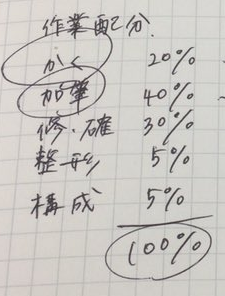 作業配分
かく 20%
加筆 40%
修・確 30%
整形 5%
構成 5%
100%